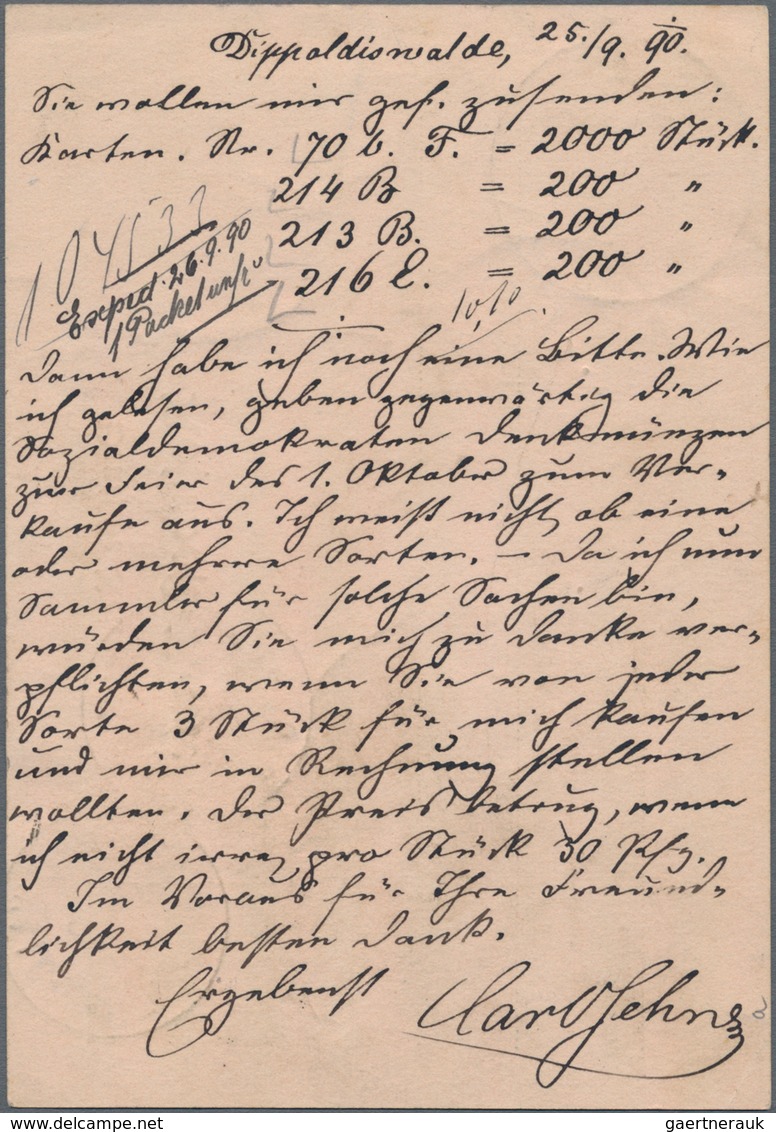 Dippoldiswalde, 25./9. 90.
Sie wollen mir gef. zusenden:
Karten. Nr. 70 b. F. = 2000 Stück.
214 B = 200 "
213 B. = 200 "
216 C. = 200 "
Exped. 26.9.90
1 Packet
10,10.
Dann habe ich noch eine Bitte. Wie
ich gelesen, geben gegenwärtig die
Sozialdemokraten Denkmünzen
zur Feier des 1. Oktober zum Ver-
kaufe aus. Ich weiß nicht, ob eine
oder mehrere Sorten. – Da ich nun
Sammler für solche Sachen bin,
würden Sie mich zu Danke ver-
pflichten, wenn Sie von jeder
Sorte 3 Stück für mich kaufen
und mir in Rechnung stellen
wollten. Der Preis betrug, wenn
ich nicht irre, pro Stück 30 Pfg.
Im Voraus für Ihre Freund-
lichkeit besten Dank.
Ergebenst
Carl Jehne
www.delcampe.net
gaertnerauk